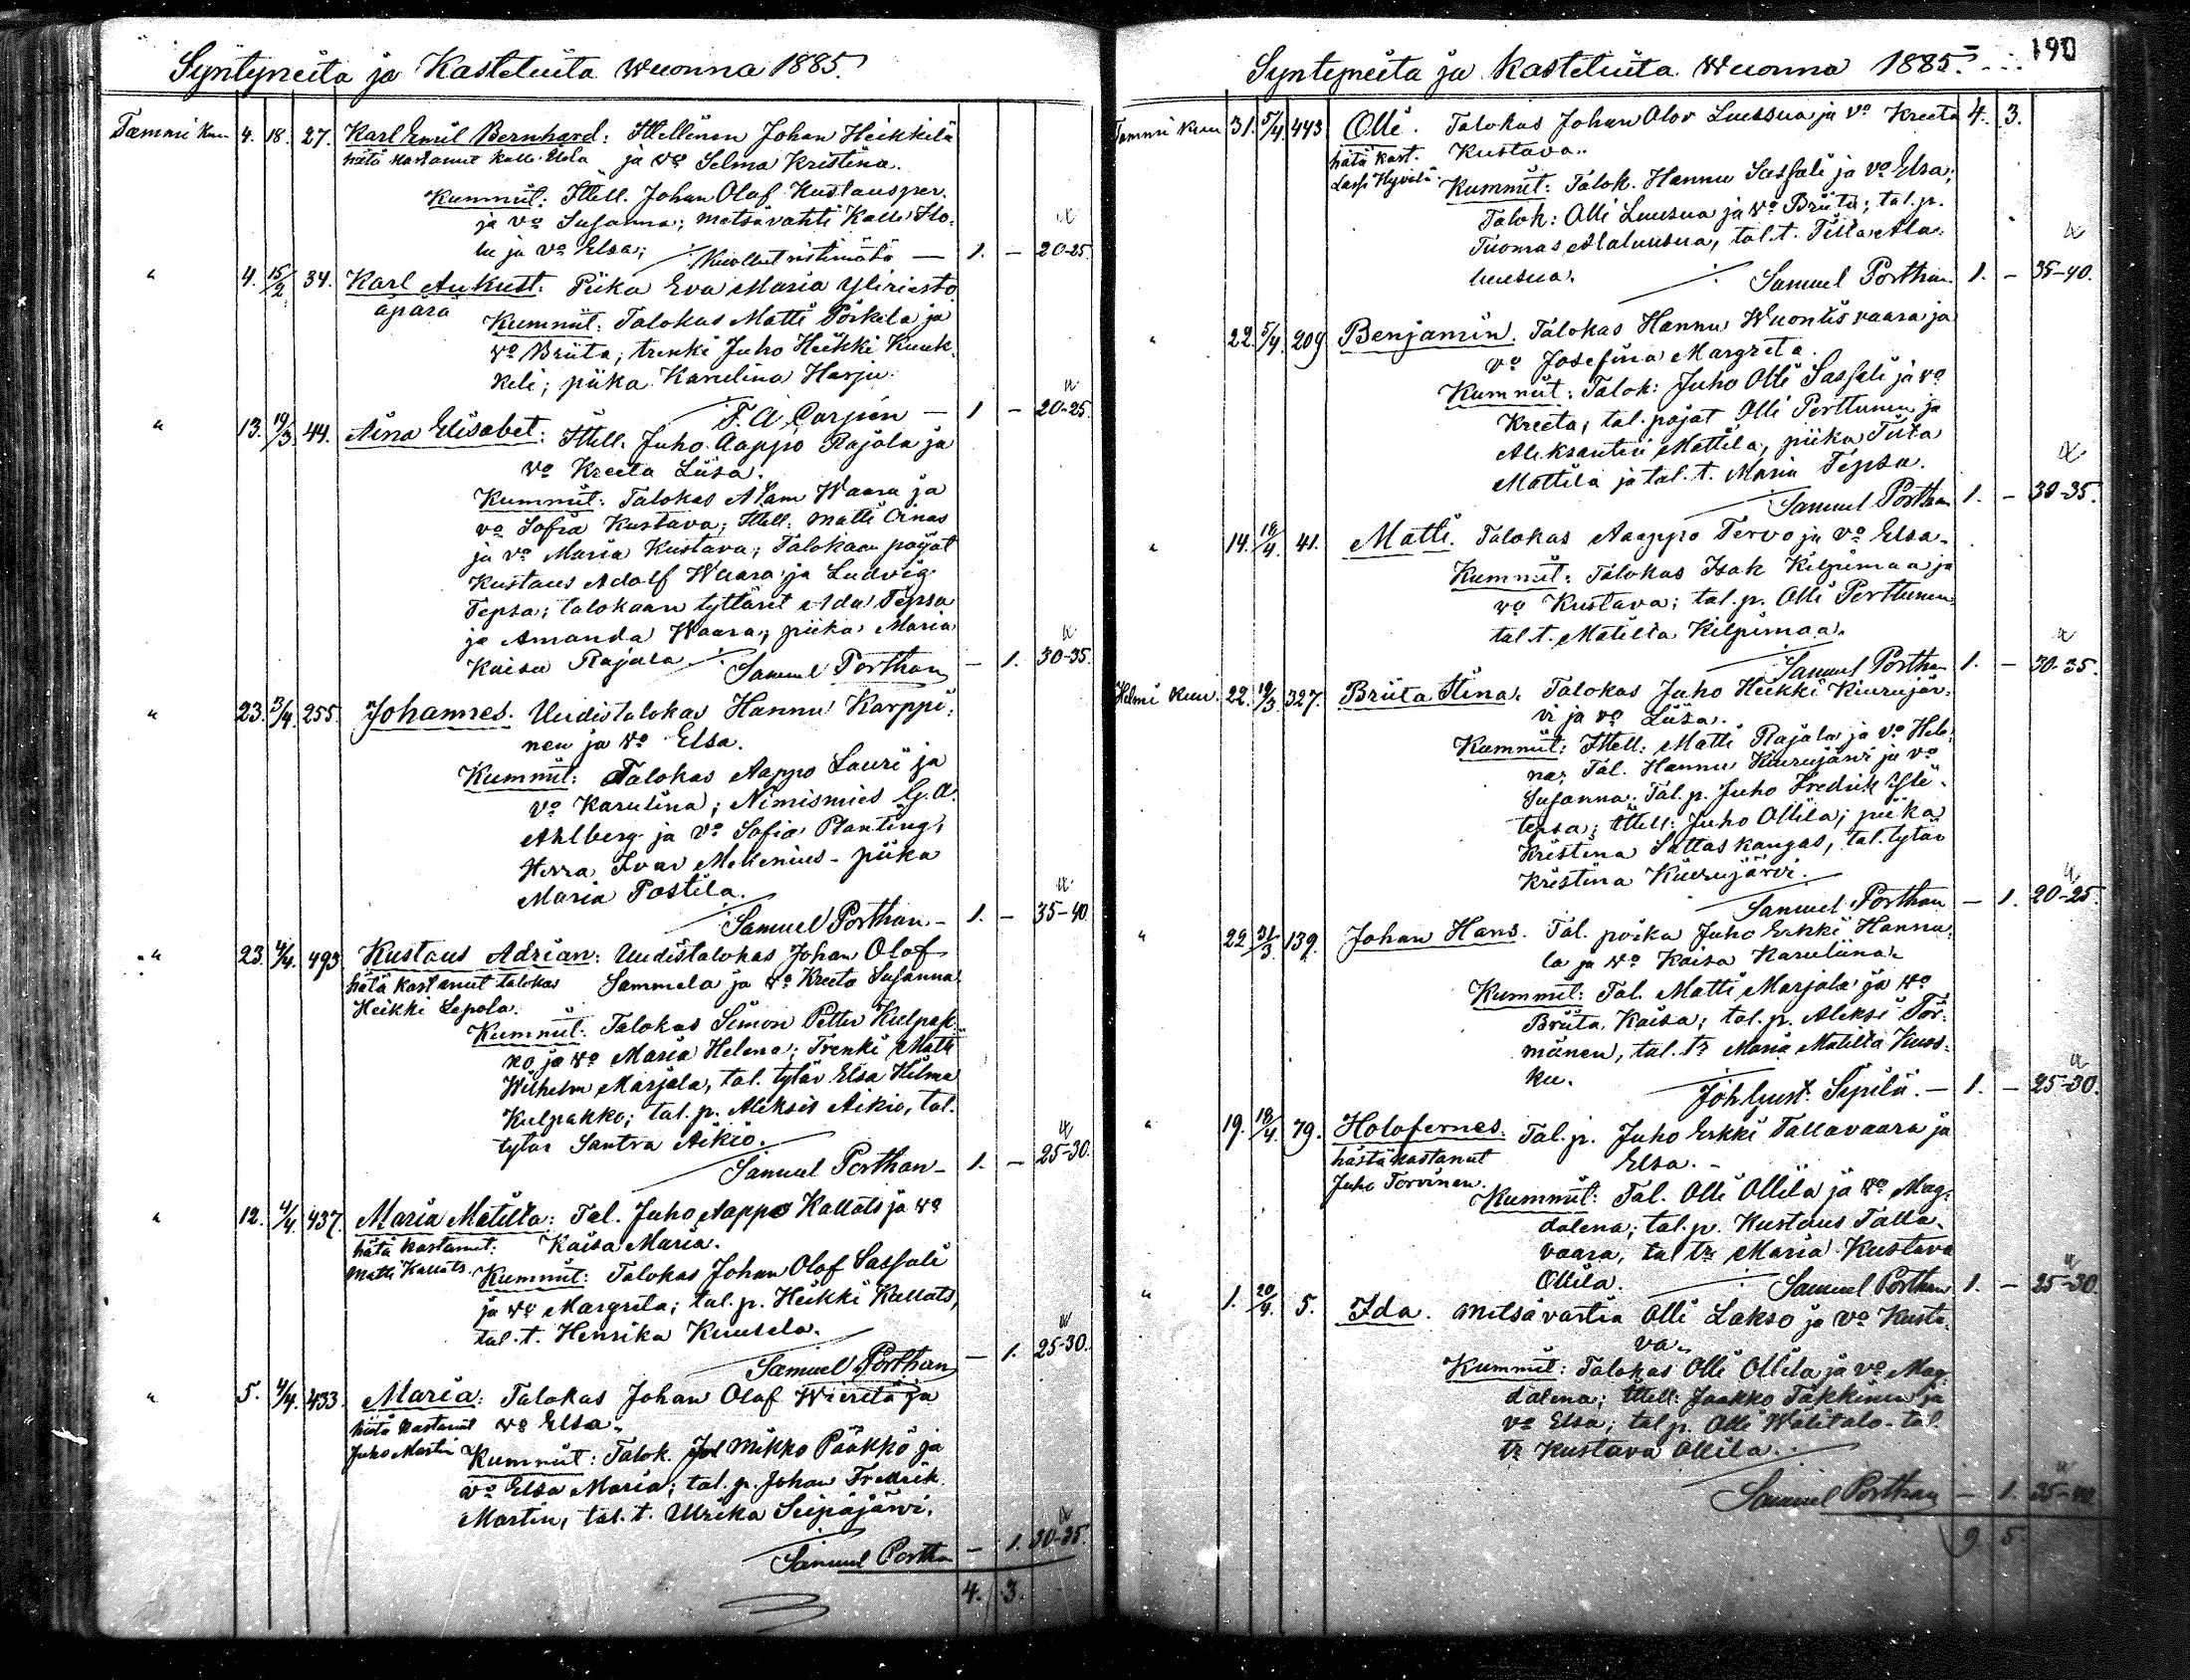 Syntyneitä ja Kastetuita wuonna 1885.
Tammi kuu 4. 18. 27. Karl Emil Bernhard: Itellinen Johan Heikkilä
hätä kastanut Kalle Flola ja vo Selma Kristina.
Kummit: Itell. Johan Olaf Kustausper.
ja vo Susanna; metsävahti Kalle Flo-
la ja vo Elsa; Kuollut ristimätä — 1. — 20-25.
" 4. 15/2 34. Karl Aukust: Piika Eva Maria Yliriesto
äpärä Kummit: Talokas Matti Pörkilä ja
vo Briita; trenki Juho Heikki Kuuk-
keli; piika Karulina Harju.
F. A. Carpén — 1 — 20-25.
" 13. 19/3 44. Aina Elisabet: Itell. Juho Aappo Rajala ja
vo Kreeta Liisa.
Kummit: Talokas Adam Waara ja
vo Sofia Kustava; Itell. Matti Oinas
ja vo Maria Kustava; Talokaan pojat
Kustaus Adolf Waara ja Ludvig
Tepsa; talokaan tyttäret Ada Tepsa
ja Amanda Waara; piika Maria
Kaisa Rajala Samuel Porthan — 1. 30-35.
" 23. 3/4. 255. Johannes. Uudistalokas Hannu Karppi-
nen ja vo Elsa.
Kummit: Talokas Aappo Lauri ja
vo Karulina; Nimismies G. A.
Ahlberg ja vo Sofia Planting,
Herra Ivar Mekenius - piika
Maria Postila.
Samuel Porthan - 1. — 35-40.
" 23. 4/4. 493 Kustaus Adrian: Uudistalokas Johan Olof
hätä kastanut talokas Sammela ja vo Kreeta Susanna.
Heikki Lepola.
Kummit: Talokas Simon Petter Kulpak-
ko ja vo Maria Helena; Trenki Matti
Wilhelm Marjala, tal. tytär Elsa Hilma
Kulpakko; tal. p. Aleksis Aikio, tal.
tytär Santra Aikio.
Samuel Porthan - 1. — 25-30.
" 12. 4/4. 437. Maria Matilta: Tal. Juho Aappo Kallats ja vo
hätä kastanut: Kaisa Maria.
Matti Kallats. Kummit: Talokas Johan Olof Sassali
ja vo Margreta; tal. p. Heikki Kallats,
tal. t. Henrika Kuusela.
Samuel Porthan — 1. 25-30.
" 5. 4/4. 433. Maria: Talokas Johan Olof Wieritä ja
hätä kastanut vo Elsa.
Juho Martin Kummit: Talok. Mikko Pääkkö ja
vo Elsa Maria; tal. p. Johan Fredrik
Martin, tal. t. Ulrika Seipäjärvi.
Samuel Porthan — 1. 30-35.
4. 3.
Syntyneitä ja Kastetuita Wuonna 1885. 190
Tammi kuu 31. 5/4. 443 Olli. Talokas Johan Olov Luussua ja vo Kreeta 4. 3.
hätä kast. Kustava.
Lassi Hyvelä. Kummit: Talok. Hannu Sassali ja vo Elsa;
Talok: Olli Luusua ja vo Briita; tal. p.
Tuomas Alaluusua, tal. t. Tilta Ala-
luusua.
Samuel Porthan 1. — 35-40.
" 22. 5/4. 209 Benjamin. Talokas Hannu Wuontisvaara ja
vo Josefina Margreta.
Kummit: Talok: Juho Olli Sassali ja vo
Kreeta; tal. pojat Olli Perttunen ja
Aleksantei Mattila, piika Tiita
Mattila ja tal. t. Maria Tepsa.
Samuel Porthan 1. — 30-35.
" 14. 18/4. 41. Matti. Talokas Aappo Tervo ja vo Elsa.
Kummit: Talokas Isak Kilpimaa ja
vo Kustava; tal. p. Olli Perttunen,
tal. t. Matilta Kilpimaa.
Samuel Porthan 1. — 30-35.
Helmi kuu. 22. 19/3. 327. Briita Stina. Talokas Juho Heikki Kiurujär-
vi ja vo Liisa.
Kummit: Itell: Matti Rajala ja vo Hele-
na; Tal. Hannu Kiurujärvi ja vo
Susanna. Tal. p. Juho Fredrik Yli-
tepsa; Itell: Juho Ollila; piika
Kristina Sattaskangas, tal. tytär
Kristina Kiurujärvi.
Samuel Porthan — 1. 20-25.
" 22. 31/3. 139. Johan Hans. Tal. poika Juho Erkki Hannu-
la ja vo Kaisa Karuliina.
Kummit: Tal. Matti Marjala ja vo
Briita Kaisa; tal. p. Aleksi Tör-
mänen, tal. tr Maria Matilta Kuos-
ku.
Joh. Gust. Sipilä. — 1. — 25-30.
" 19. 18/4. 79. Holofernes. Tal. p. Juho Erkki Tallavaara ja
hätä kastanut Elsa. -
Juho Torvinen.
Kummit: Tal. Olli Ollila ja vo Mag-
dalena; tal. p. Kustaus Talla-
vaara, tal tr Maria Kustava
Ollila. Samuel Porthan 1. — 25-30.
" 1. 20/4. 5. Ida. Metsävartia Olli Lakso ja vo Kusta-
va.
Kummit: Talokas Olli Ollila ja vo Mag-
dalena; Itell: Jaakko Täkkinen ja
vo Elsa; tal p. Olli Wälitalo - tal.
tr Kustava Ollila.
Samuel Porthan — 1. 35-40
9. 5.